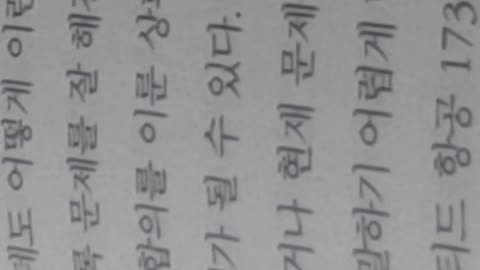 도 어떻게 이런
록 문제를 잘 해
합의를 이룬 상
가 될 수 있다.
거나 현제 문제
말하기 어렵게
티드 항공 173